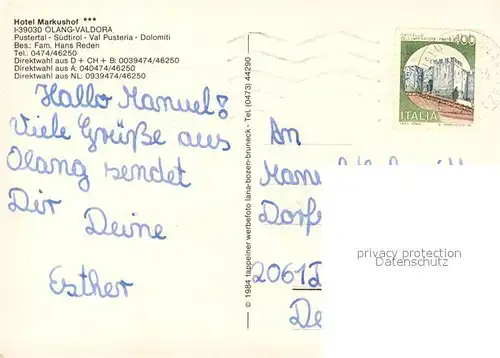 Hotel Markushof ***
I-39030 OLANG-VALDORA
Pustertal - Südtirol - Val Pusteria - Dolomiti
Bes.: Fam. Hans Reden
Tel.: 0474/46250
Direktwahl aus D + CH + B: 0039474/46250
Direktwahl aus A: 040474/46250
Direktwahl aus NL: 0939474/46250
Hallo Manuel!
Viele Grüße aus
Olang sendet
Dir Deine
Esther
© 1984 tappeiner werbefoto lana-bozen-bruneck - Tel. (0473) 44290
400
ITALIA
An
Dorfe
2061
De
privacy protection
Datenschutz